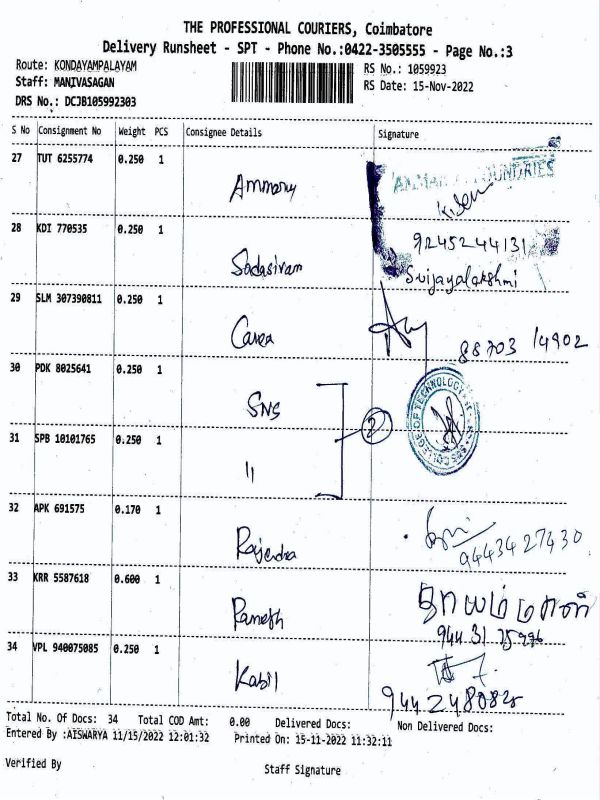 THE PROFESSIONAL COURIERS, Coimbatore
Delivery Runsheet - SPT - Phone No.:0422-3505555 - Page No.:3
Route: KONDAYAMPALAYAM
RS No.: 1059923
Staff: MANIVASAGAN
RS Date: 15-Nov-2022
DRS No.: DCJB105992303
S No Consignment No Weight PCS Consignee Details Signature
27 TUT 6255774 0.250 1
Ammarny
28 KDI 770535 0.250 1
9245244131
Sadasivam
S vijayalakshmi
29 SLM 307390811 0.250 1
Carea
88703 14902
30 PDK 8025641 0.250 1
SNS
2
31 SPB 10101765 0.250 1
11
COLLEGE OF TECHNOLOGY
32 APK 691575 0.170 1
Rajendra
9443427430
33 KRR 5587618 0.600 1
Ramesh
34 VPL 940075085 0.250 1
Kabil
Total No. Of Docs: 34 Total COD Amt: 0.00 Delivered Docs: Non Delivered Docs:
Entered By :AISWARYA 11/15/2022 12:01:32 Printed On: 15-11-2022 11:32:11
Verified By
Staff Signature